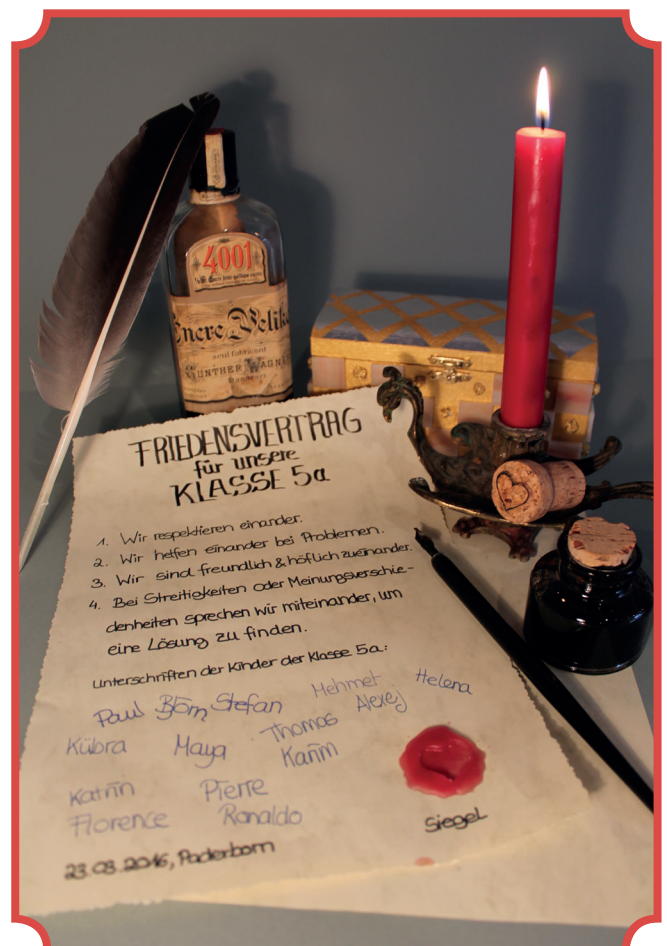 4001
Encre Pelik
seul fabricant
GÜNTHER WAGN
FRIEDENSVERTRAG
für unsere
KLASSE 5a
1. Wir respektieren einander.
2. Wir helfen einander bei Problemen.
3. Wir sind freundlich & höflich zueinander.
4. Bei Streitigkeiten oder Meinungsverschie-
denheiten sprechen wir miteinander, um
eine Lösung zu finden.
Unterschriften der Kinder der Klasse 5a:
Paul Björn Stefan Mehmet Helena
Kübra Maya Thomas Alexej
Karim
Katrin Pierre
Florence Ronaldo
Siegel
23.03.2016, Paderborn